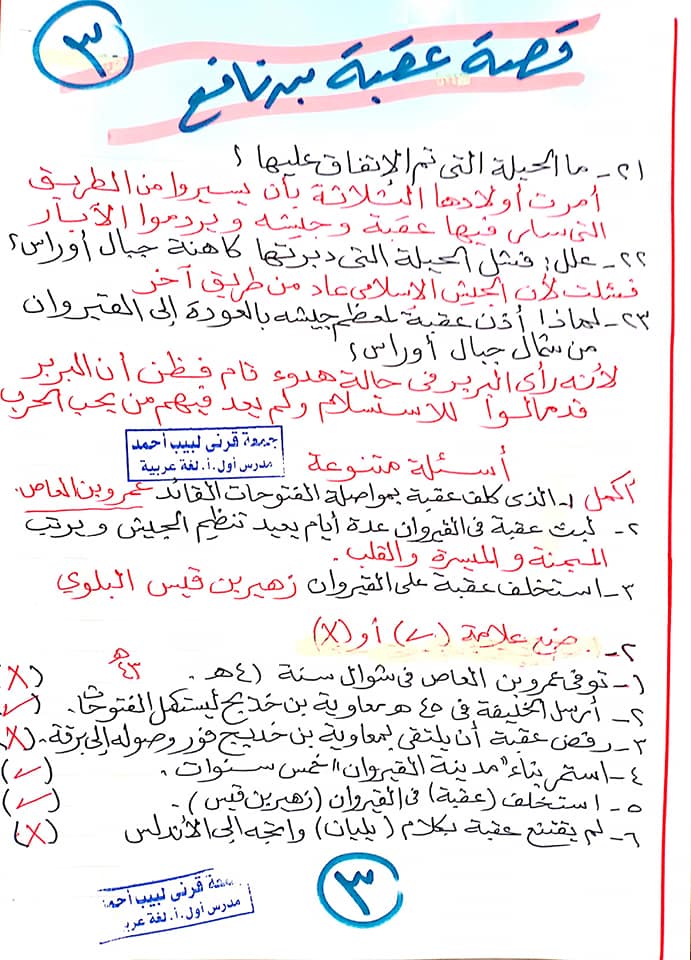 ٣
قصة عقبة بن نافع
٢١- ما الحيلة التى تم الإتفاق عليها ؟
أمرت أولادها الثلاثة بأن يسيروا من الطريق
التى سار فيها عقبة وجيشه ويردموا الآبار
٢٢- علل: فشل الحيلة التى دبرتها كاهنة جبال أوراس؟
فشلت لأن الجيش الإسلامى عاد من طريق آخر
٢٣- لماذا أذن عقبة لمعظم جيشه بالعودة إلى القيروان
من شمال جبال أوراس؟
لأنه رأى البربر فى حالة هدوء تام فظن أن البربر
قد مالوا للاستسلام ولم يعد فيهم من يحب الحرب
جمعة قرنى لبيب أحمد
مدرس أول.أ. لغة عربية
أسئلة متنوعة
أكمل ١- الذى كلف عقبة بمواصلة الفتوحات القائد عمرو بن العاص.
٢- لبث عقبة فى القيروان عدة أيام يعيد تنظيم الجيش ويرتب
الميمنة والميسرة والقلب.
٣- استخلف عقبة على القيروان زهير بن قيس البلوي
٢- ضع علامة (✓) أو (X)
٤٣هـ
١- توفى عمرو بن العاص فى شوال سنة ٤٤هـ. (X)
٢- أرسل الخليفة فى ٤٥ هـ معاوية بن خديج ليستكمل الفتوحات. (✓)
٣- رفض عقبة أن يلتقى بمعاوية بن خديج فور وصوله إلى برقة. (X)
٤- استمر بناء "مدينة القيروان" خمس سنوات. (✓)
٥- استخلف (عقبة) فى القيروان (زهير بن قيس). (✓)
٦- لم يقتنع عقبة بكلام (يليان) واتجه إلى الأندلس (X)
٣
قرنى لبيب أحمد
مدرس أول.أ. لغة عر